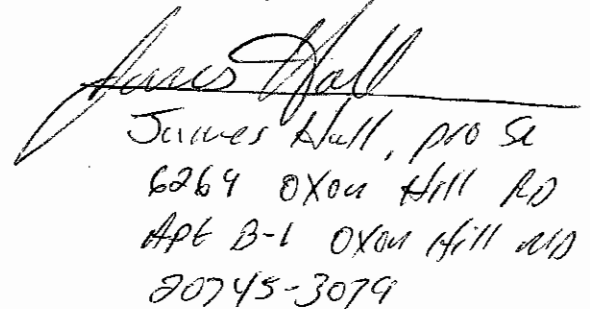 James Hall
James Hall, pro se
6264 Oxon Hill RD
Apt B-1 Oxon Hill MD
20745-3079